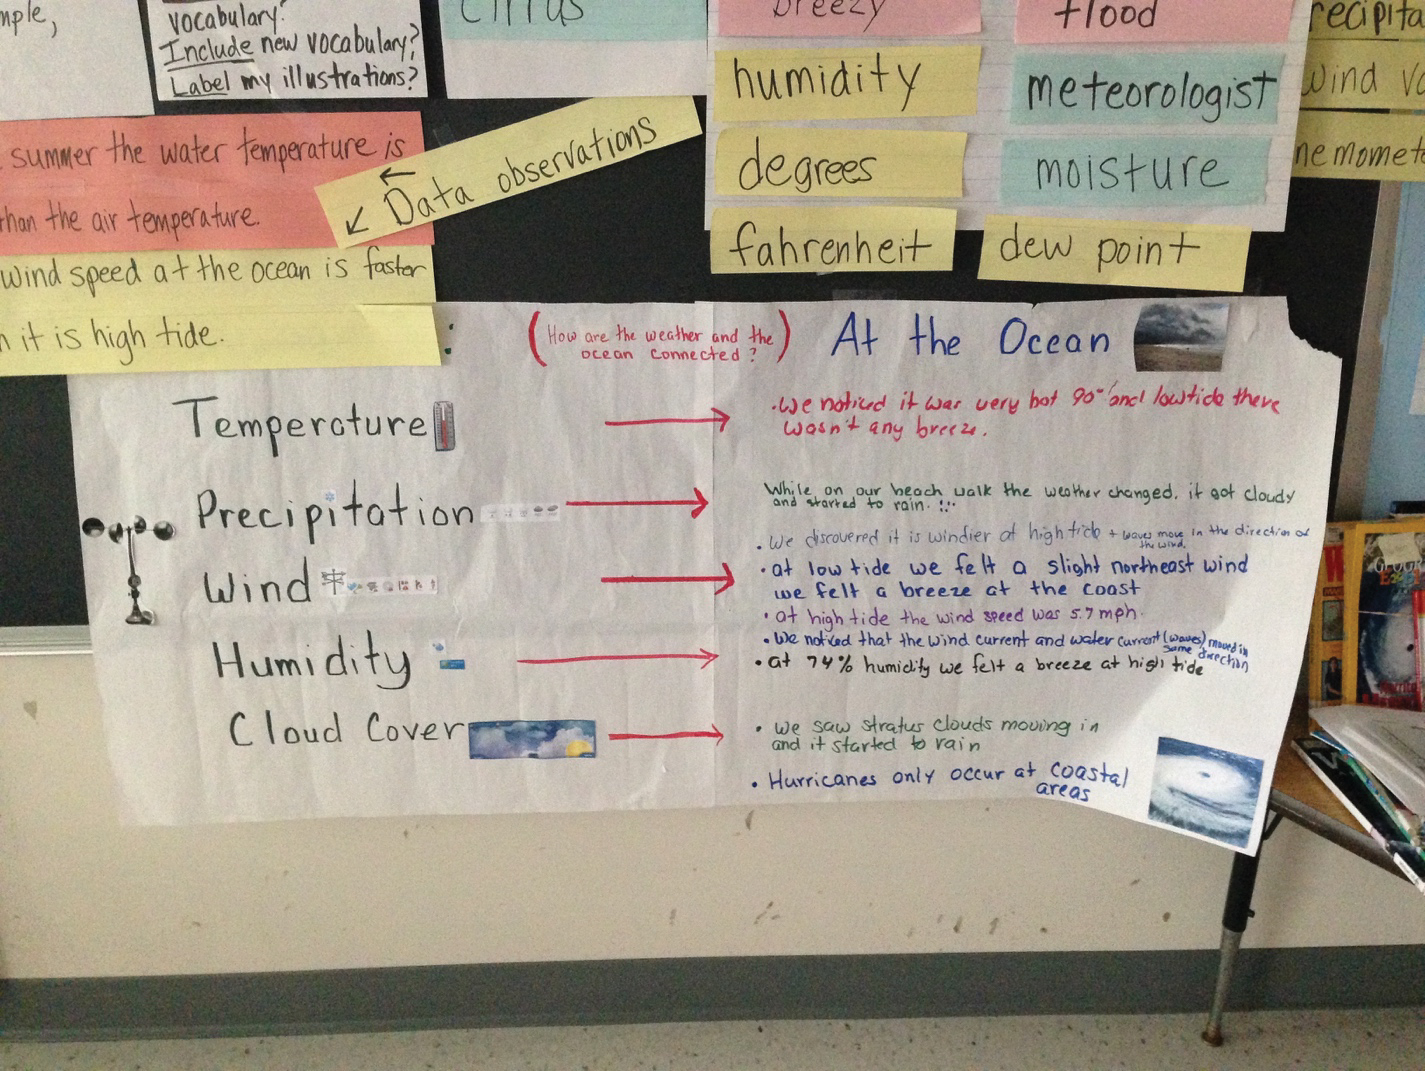 vocabulary?
Include new vocabulary?
Label my illustrations?
cirrus
breezy
flood
humidity
meteorologist
wind
degrees
moisture
fahrenheit
dew point
summer the water temperature is
than the air temperature.
Data observations
wind speed at the ocean is faster
it is high tide.
(How are the weather and the
ocean connected?)
At the Ocean
Temperature
• We noticed it was very hot 90° and low tide there
wasn't any breeze.
Precipitation
While on our beach walk the weather changed, it got cloudy
and started to rain.
• We discovered it is windier at high tide + waves move in the direction of
the wind.
Wind
• at low tide we felt a slight northeast wind
we felt a breeze at the coast
• at high tide the wind speed was 5.7 mph.
• We noticed that the wind current and water current (waves) moved in
same direction
Humidity
• at 74% humidity we felt a breeze at high tide
Cloud Cover
• we saw stratus clouds moving in
and it started to rain
• Hurricanes only occur at coastal
areas